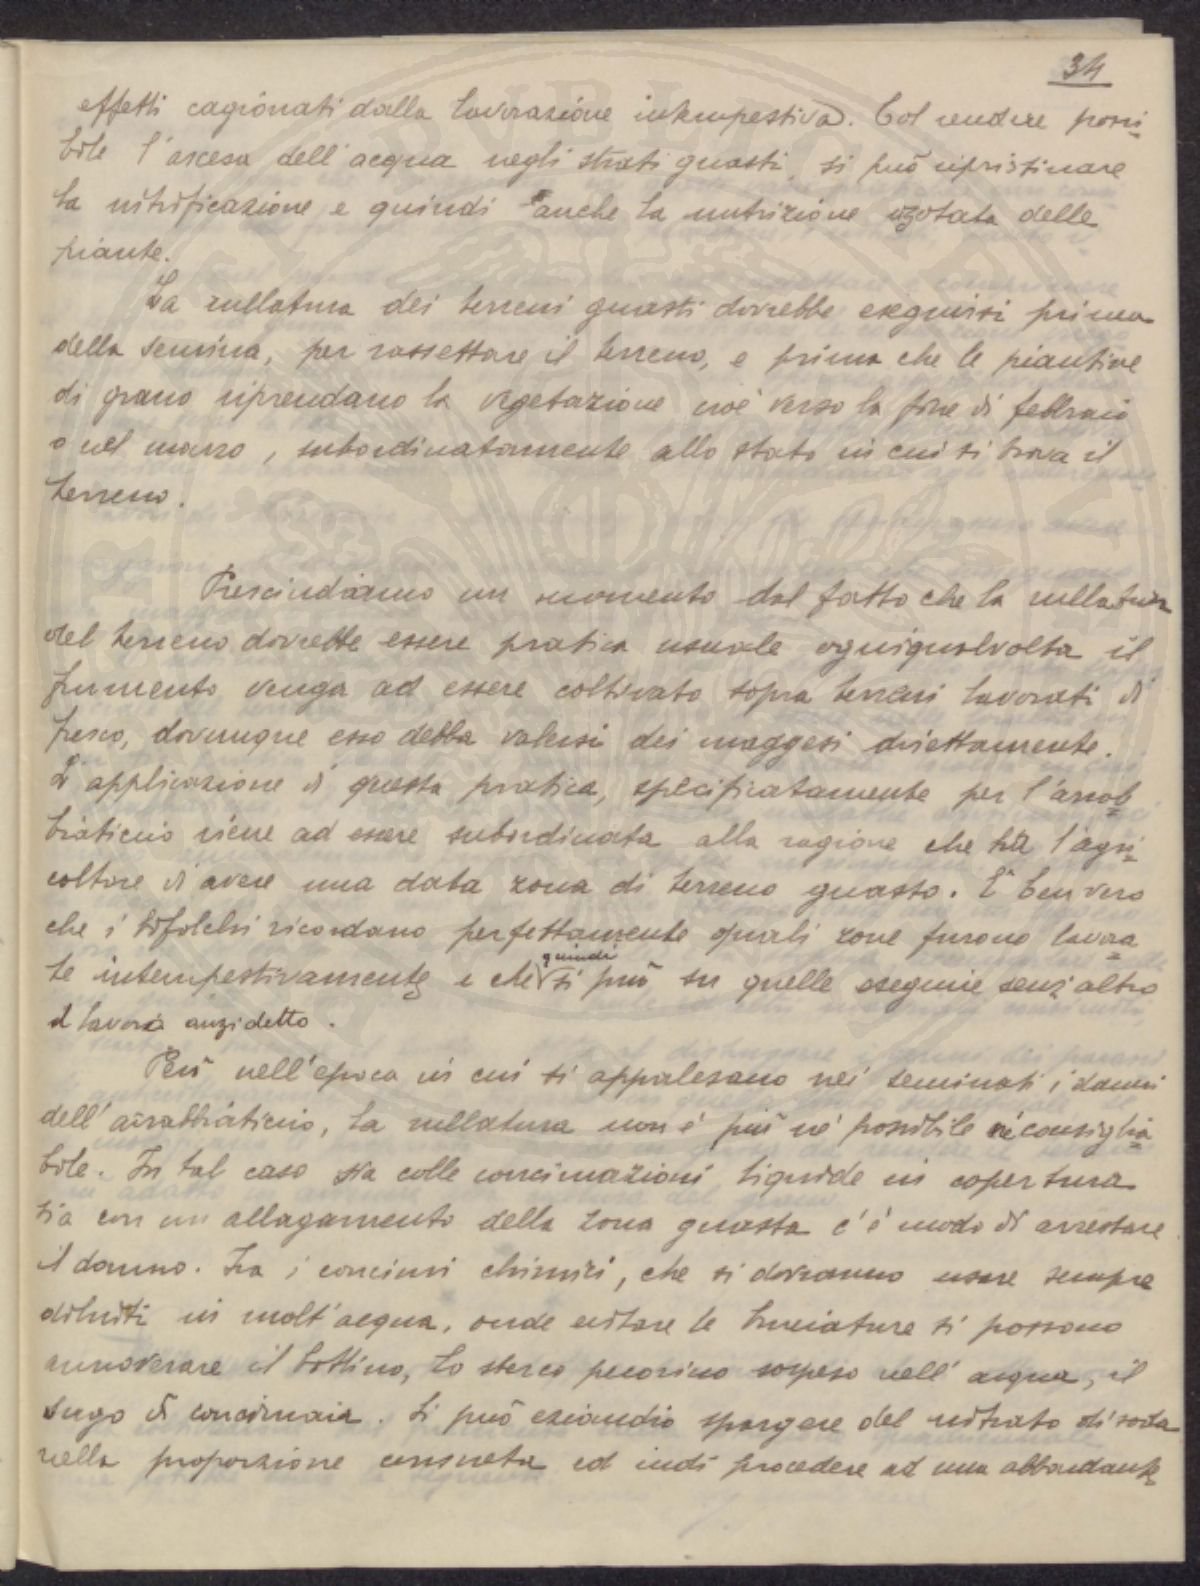 34
effetti cagionati dalla lavorazione intempestiva. Col rendere possi-
bile l'ascesa dell'acqua negli strati guasti, si può ripristinare
la nitrificazione e quindi anche la nutrizione azotata delle
piante.
La rullatura dei terreni guasti dovrebbe eseguirsi prima
della semina, per rassettare il terreno, e prima che le piantine
di grano riprendano la vegetazione cioè verso la fine di febbraio
o nel marzo, subordinatamente allo stato in cui si trova il
terreno.
Prescindiamo un momento dal fatto che la rullatura
del terreno dovrebbe essere pratica usuale ogniqualvolta il
frumento venga ad essere coltivato sopra terreni lavorati di
fresco, dovunque esso debba valersi dei maggesi direttamente.
L'applicazione di questa pratica, specificatamente per l'arrab-
biaticcio viene ad essere subordinata alla ragione che ha l'agri-
coltore di avere una data zona di terreno guasto. È ben vero
che i bifolchi ricordano perfettamente quali zone furono lavora-
te intempestivamente e che quindi si può su quelle eseguire senz'altro
il lavoro anzidetto.
Però nell'epoca in cui si appalesano nei seminati i danni
dell'arrabbiaticcio, la rullatura non è più né possibile né consiglia-
bile. In tal caso sia colle concimazioni liquide in copertura
sia con un allagamento della zona guasta c'è modo di arrestare
il danno. Fra i concimi chimici, che si dovranno usare sempre
diluiti in molt'acqua, onde evitare le bruciature si possono
annoverare il bottino, lo sterco pecorino sospeso nell'acqua, il
sugo di concimaia. Si può eziandio spargere del nitrato di soda
nella proporzione consueta ed indi procedere ad una abbondante